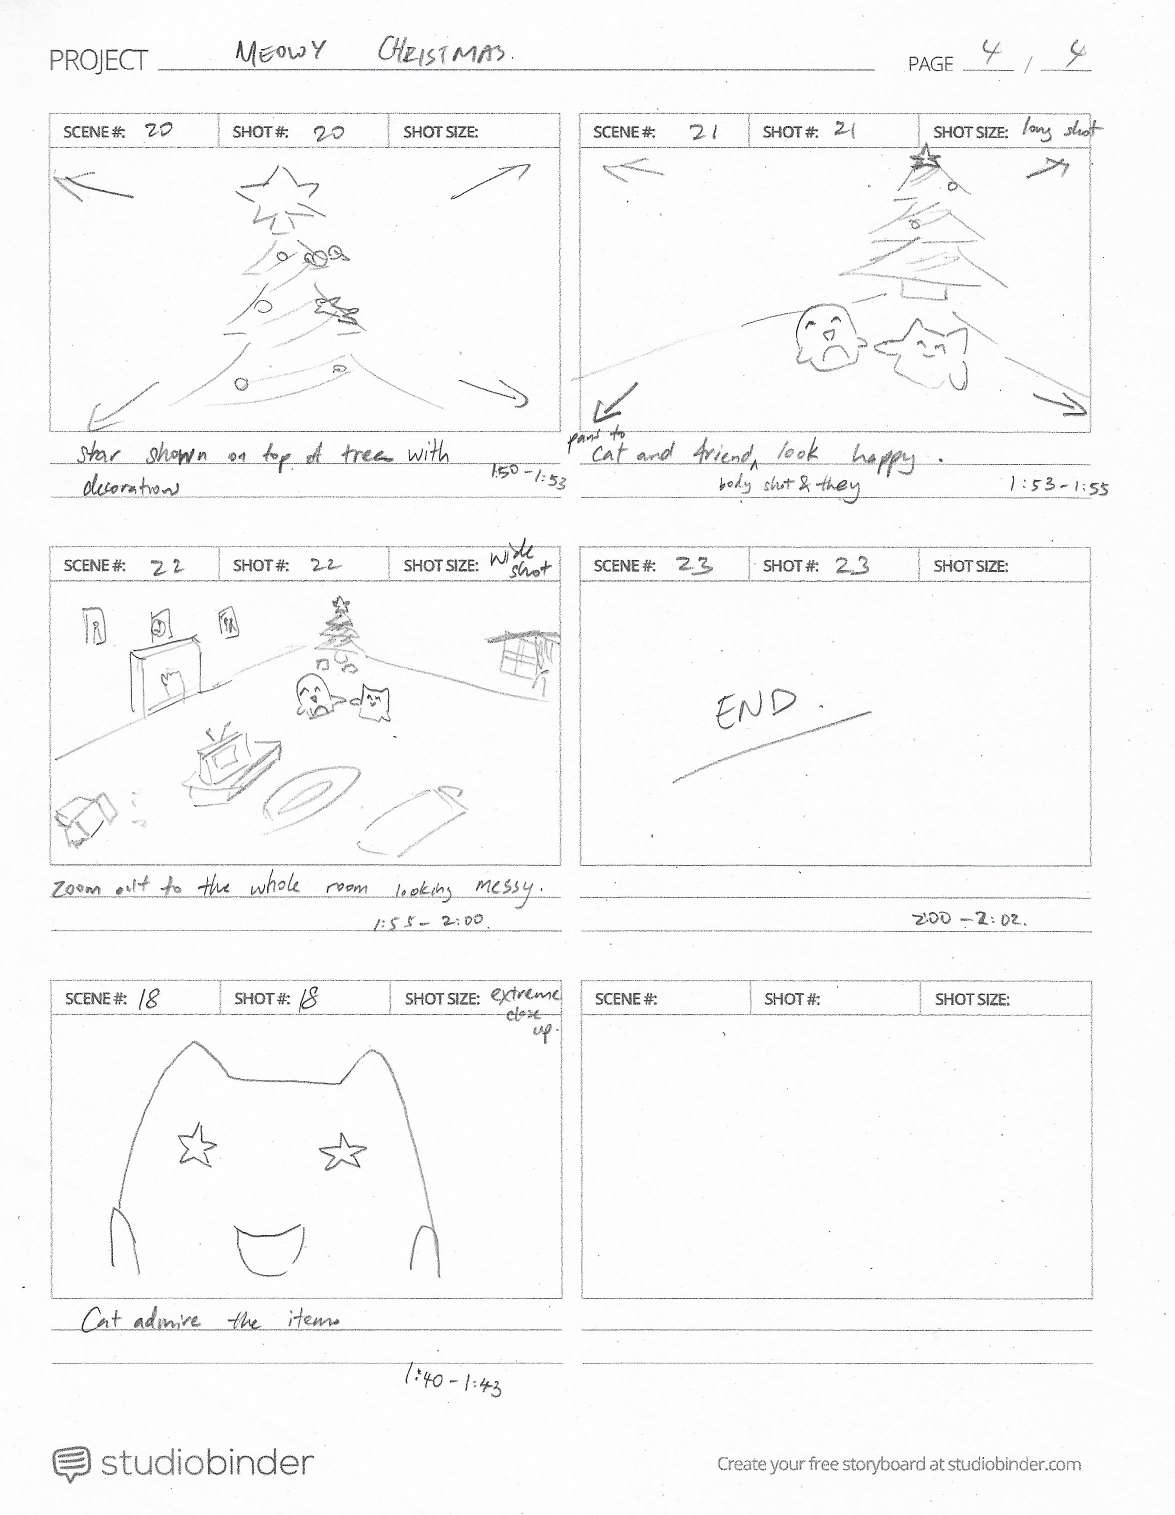 PROJECT MEOWY CHRISTMAS.
PAGE 4 / 4
SCENE #: 20 SHOT #: 20 SHOT SIZE:
star shown on top of tree with
decoration
1:50-1:53
SCENE #: 21 SHOT #: 21 SHOT SIZE: long shot
pans to
cat and friend look happy.
body shot & they
1:53-1:55
SCENE #: 22 SHOT #: 22 SHOT SIZE: wide
shot
zoom out to the whole room looking messy.
1:55- 2:00.
SCENE #: 23 SHOT #: 23 SHOT SIZE:
END.
2:00 -2:02.
SCENE #: 18 SHOT #: 18 SHOT SIZE: extreme
close
up.
Cat admire the items
1:40-1:43
SCENE #: SHOT #: SHOT SIZE:
studiobinder
Create your free storyboard at studiobinder.com